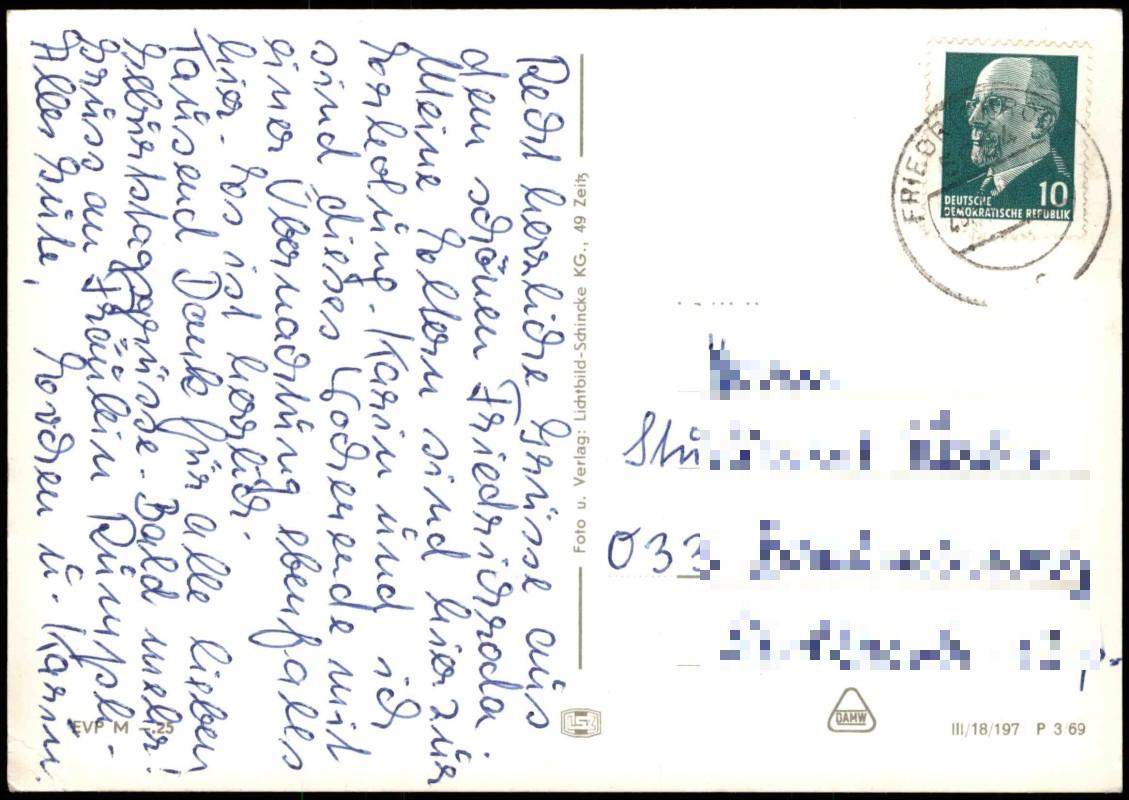 Recht herzliche Grüsse aus
dem schönen Friedrichroda
Meine Eltern sind hier zur
Erholung. Karin und ich
sind dieses Wochenende mit
einer Übernachtung ebenfalls
hier. Es ist herrlich.
Tausend Dank für alle lieben
Geburtstagsgrüsse. Bald mehr!
Gruss an Fräulein
Alles Gute, u. Karin.
EVP M –.25
Foto u. Verlag: Lichtbild-Schincke KG., 49 Zeitz
DEUTSCHE
DEMOKRATISCHE REPUBLIK
10
FRIEDR
033
DAMW
III/18/197 P 3/69